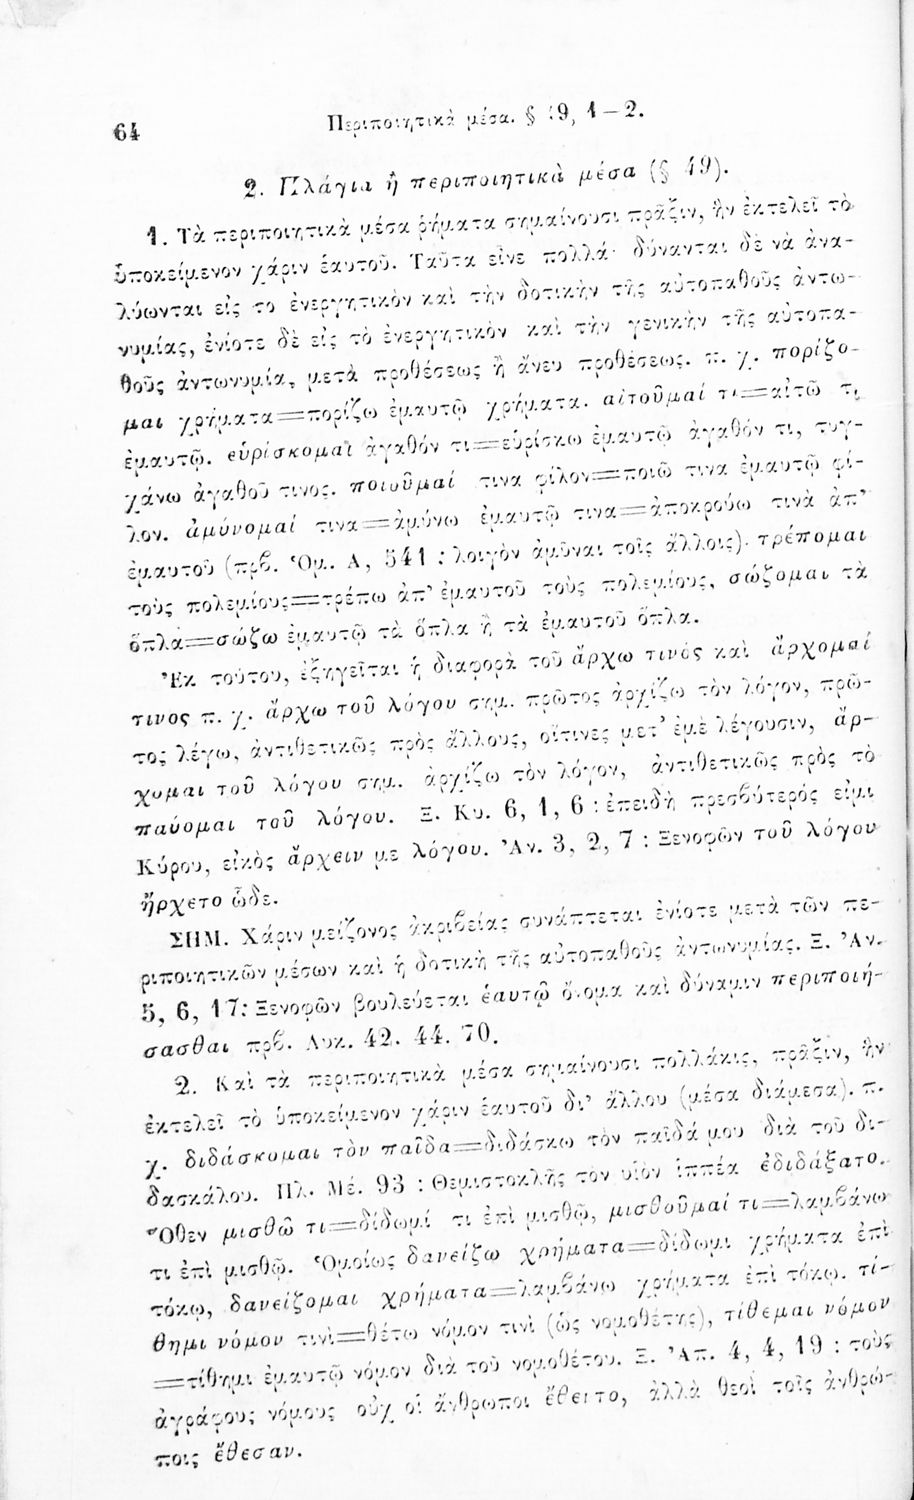 64
Περιποιητικὰ μέσα. § 49, 1—2.
2. Πλάγια ἢ περιποιητικὰ μέσα (§ 49).
1. Τὰ περιποιητικὰ μέσα ῥήματα σημαίνουσι πρᾶξιν, ἣν ἐκτελεῖ τὸ
ὑποκείμενον χάριν ἑαυτοῦ. Ταῦτα εἶνε πολλά· δύνανται δὲ νὰ ἀνα-
λύωνται εἰς τὸ ἐνεργητικὸν καὶ τὴν δοτικὴν τῆς αὐτοπαθοῦς ἀντω-
νυμίας, ἐνίοτε δὲ εἰς τὸ ἐνεργητικὸν καὶ τὴν γενικὴν τῆς αὐτοπα-
θοῦς ἀντωνυμίας μετὰ προθέσεως ἢ ἄνευ προθέσεως. π. χ. πορίζο-
μαι χρήματα=πορίζω ἐμαυτῷ χρήματα. αἰτοῦμαί τι=αἰτῶ τι
ἐμαυτῷ. εὑρίσκομαι ἀγαθόν τι=εὑρίσκω ἐμαυτῷ ἀγαθόν τι, τυγ-
χάνω ἀγαθοῦ τινος. ποιοῦμαί τινα φίλον=ποιῶ τινα ἐμαυτῷ φί-
λον. ἀμύνομαί τινα=ἀμύνω ἐμαυτῷ τινα=ἀποκρούω τινὰ ἀπ’
ἐμαυτοῦ (πρβ. Ὁμ. Α, 541 : λοιγὸν ἀμῦναι τοῖς ἄλλοις). τρέπομαι
τοὺς πολεμίους=τρέπω ἀπ’ ἐμαυτοῦ τοὺς πολεμίους, σώζομαι τὰ
ὅπλα=σώζω ἐμαυτῷ τὰ ὅπλα ἢ τὰ ἐμαυτοῦ ὅπλα.
Ἐκ τούτου, ἐξηγεῖται ἡ διαφορὰ τοῦ ἄρχω τινὸς καὶ ἄρχομαί
τινος π. χ. ἄρχω τοῦ λόγου σημ. πρῶτος ἀρχίζω τὸν λόγον, πρῶ-
τος λέγω, ἀντιθετικῶς πρὸς ἄλλους, οἵτινες μετ’ ἐμὲ λέγουσιν, ἄρ-
χομαι τοῦ λόγου σημ. ἀρχίζω τὸν λόγον, ἀντιθετικῶς πρὸς τὸ
παύομαι τοῦ λόγου. Ξ. Κυ. 6, 1, 6 : ἐπειδὴ πρεσβύτερός εἰμι
Κύρου, εἰκὸς ἄρχειν με λόγου. Ἀν. 3, 2, 7 : Ξενοφῶν τοῦ λόγου
ἤρχετο ὧδε.
ΣΗΜ. Χάριν μείζονος ἀκριβείας συνάπτεται ἐνίοτε μετὰ τῶν πε-
ριποιητικῶν μέσων καὶ ἡ δοτικὴ τῆς αὐτοπαθοῦς ἀντωνυμίας. Ξ. Ἀν.
5, 6, 17: Ξενοφῶν βουλεύεται ἑαυτῷ ὄνομα καὶ δύναμιν περιποιή-
σασθαι πρβ. Λυκ. 42. 44. 70.
2. Καὶ τὰ περιποιητικὰ μέσα σημαίνουσι πολλάκις, πρᾶξιν, ἣν
ἐκτελεῖ τὸ ὑποκείμενον χάριν ἑαυτοῦ δι’ ἄλλου (μέσα διάμεσα). π.
χ. διδάσκομαι τὸν παῖδα=διδάσκω τὸν παῖδά μου διὰ τοῦ δι-
δασκάλου. Πλ. Μέ. 93 : Θεμιστοκλῆς τὸν υἱὸν ἱππέα ἐδιδάξατο.
Ὅθεν μισθῶ τι=δίδωμί τι ἐπὶ μισθῷ, μισθοῦμαί τι=λαμβάνω
τι ἐπὶ μισθῷ. Ὁμοίως δανείζω χρήματα=δίδωμι χρήματα ἐπὶ
τόκῳ, δανείζομαι χρήματα=λαμβάνω χρήματα ἐπὶ τόκῳ. τί-
θημι νόμον τινὶ=θέτω νόμον τινὶ (ὡς νομοθέτης), τίθεμαι νόμον
=τίθημι ἐμαυτῷ νόμον διὰ τοῦ νομοθέτου. Ξ. Ἀπ. 4, 4, 19 : τοὺς
ἀγράφους νόμους οὐχ οἱ ἄνθρωποι ἔθεντο, ἀλλὰ θεοὶ τοῖς ἀνθρώ-
ποις ἔθεσαν.